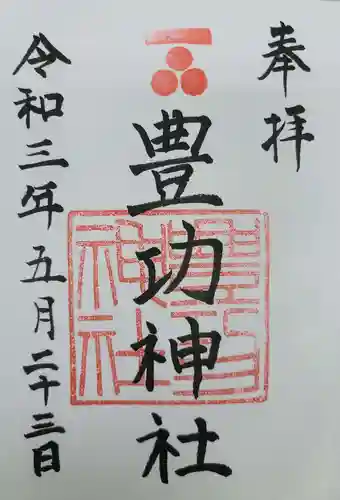 奉拝
豊功神社
令和三年五月二十三日